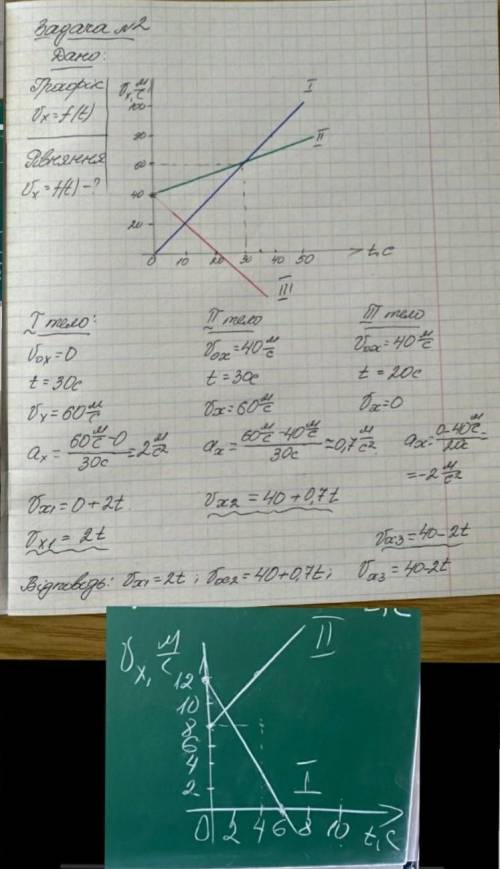 Задача №2
Дано:
Графік
Vx=f(t)
Рівняння
Vx=f(t)-?
Vx, м/с
100
80
60
40
20
0 10 20 30 40 50 t, c
I
II
III
I тело:
V0x=0
t=30c
Vx=60 м/с
ax = (60 м/с - 0)/30c = 2 м/с²
Vx1=0+2t
Vx1=2t
II тело
V0x=40 м/с
t=30c
Vx=60 м/с
ax = (60 м/с - 40 м/с)/30c ≈ 0,7 м/с²
Vx2=40+0,7t
III тело
V0x=40 м/с
t=20c
Vx=0
ax = (0-40 м/с)/20c =
= -2 м/с²
Vx3=40-2t
Відповедь: Vx1=2t; Vx2=40+0,7t; Vx3=40-2t
Vx, м/с
12
10
8
6
4
2
0 2 4 6 8 10 t, c
II
I